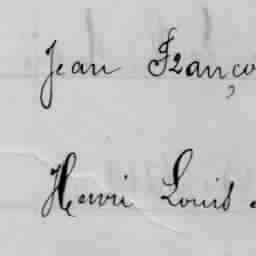 Jean Franço
Henri Louis